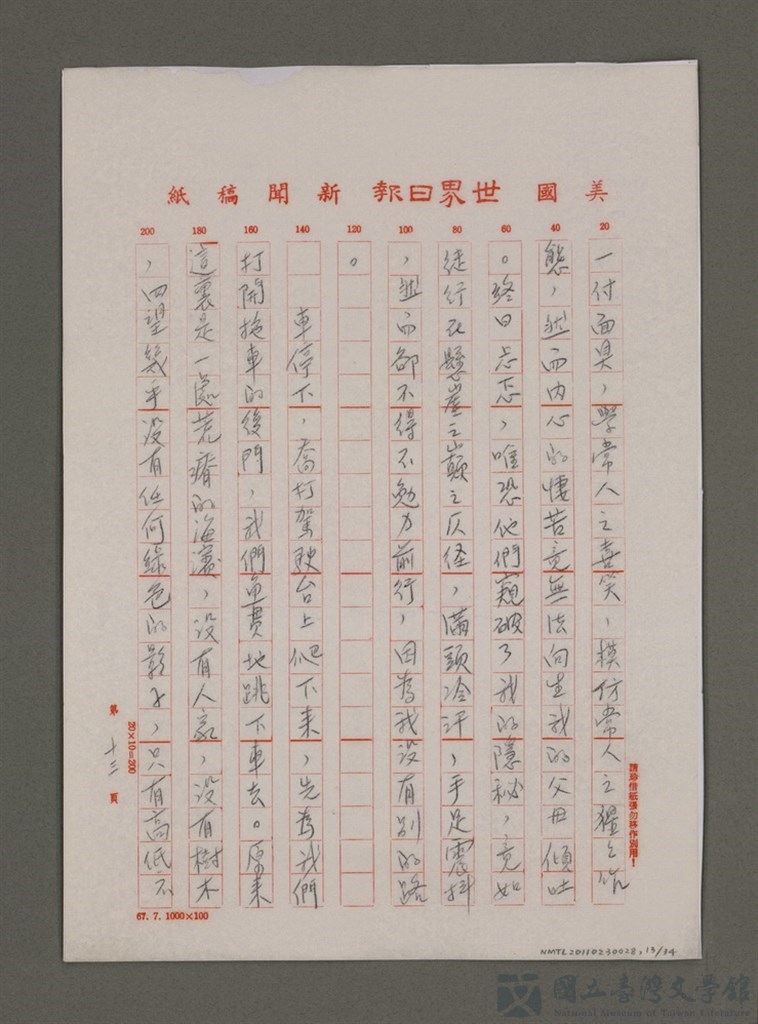 美國世界日報新聞稿紙
20
40
60
80
100
120
140
160
180
200
一付面具，學常人之喜笑，模仿常人之猩之作
態，然而内心的悽苦竟無法向生我的父母傾吐
。終日忐忑，唯恐他們窺破了我的隱秘，竟如
徒行在懸崖之巔之仄徑，滿頭冷汗，手足震抖
，然而卻不得不勉力前行，因為我沒有別的路
。
車停下，喬打駕駛台上爬下來，先為我們
打開拖車的後門，我們魚貫地跳下車去。原來
這裏是一處荒瘠的海濱，沒有人家，沒有樹木
，四望幾乎沒有任何綠色的影子，只有高低不
請珍惜紙張勿移作別用！
20×10=200
第十三頁
67.7.1000×100
NMTL20110230028,13/34
國立臺灣文學館
National Museum of Taiwan Literature